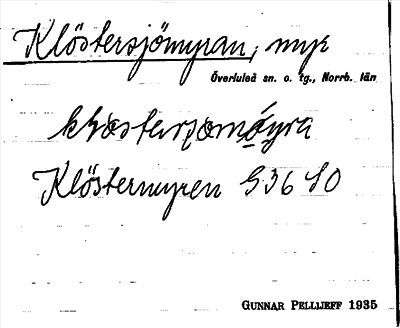 Klöstersjömyran, myr
Överluleå sn. o. tg., Norrb. län
Klöstermyren S36 SO
GUNNAR PELLIJEFF 1935